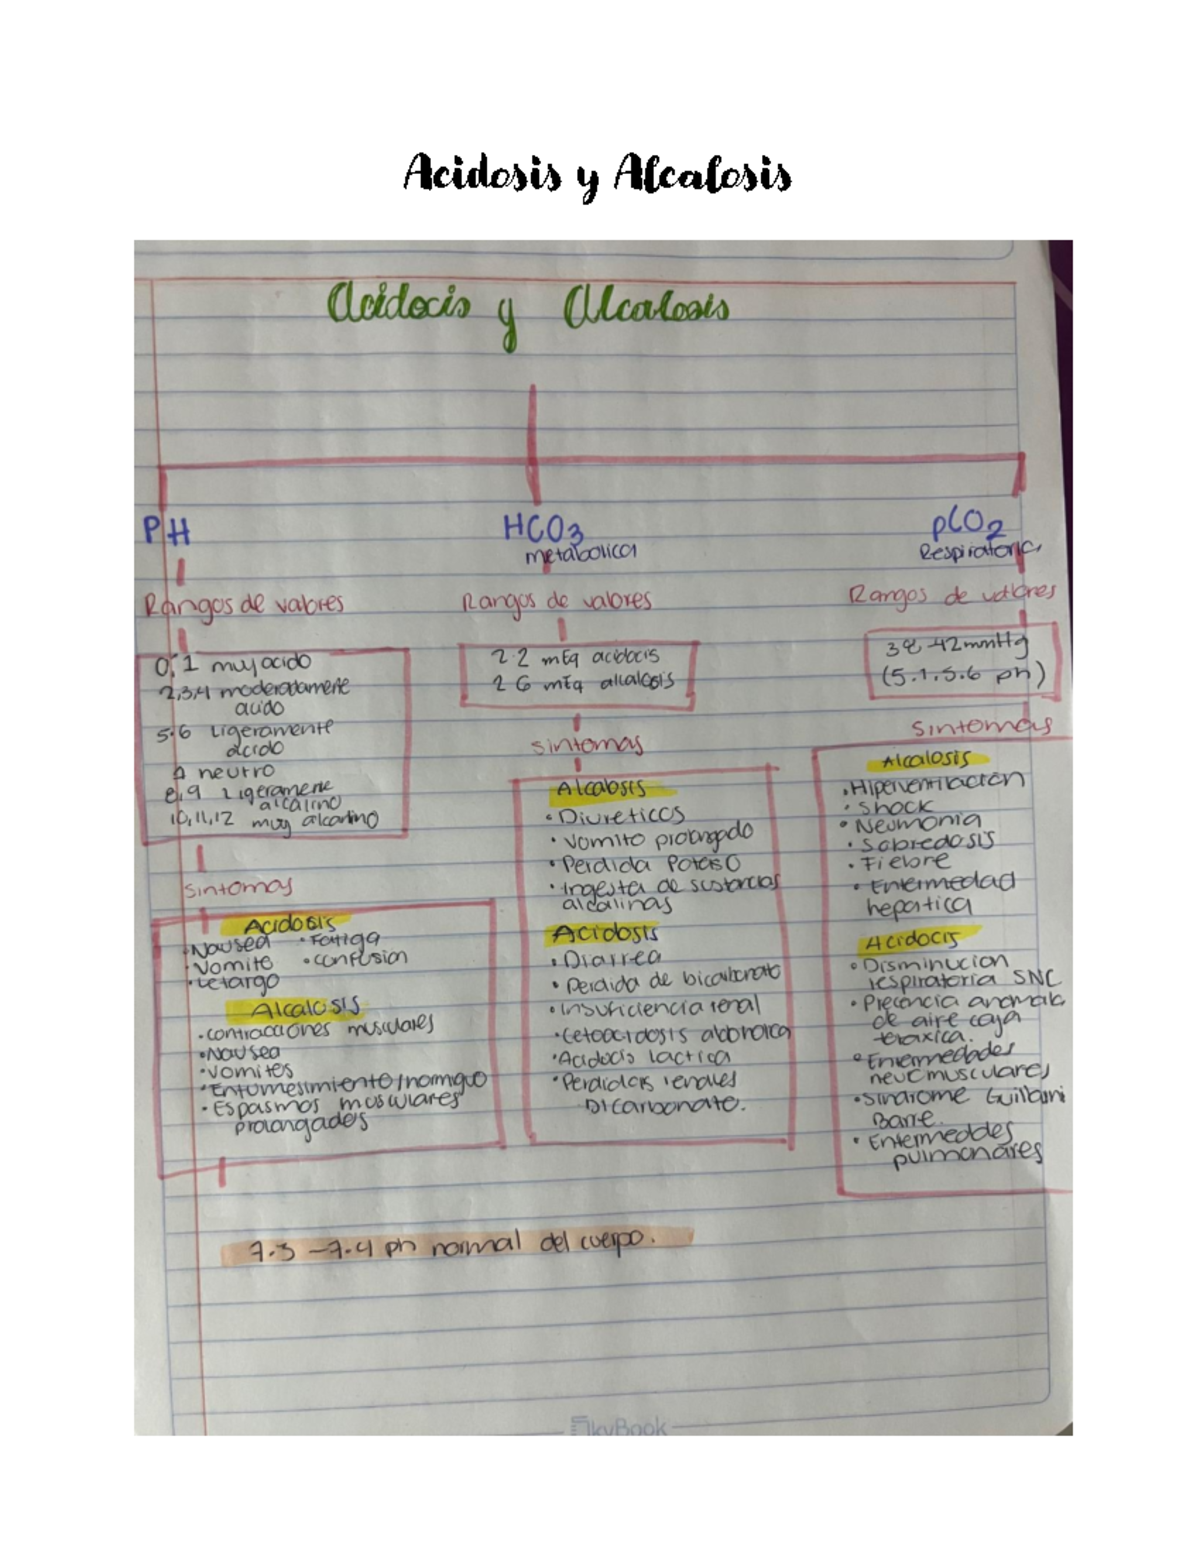 Acidosis y Alcalosis
Acidocis y Alcalosis
PH
Rangos de valores
0,1 muy acido
2,3,4 moderadamente
acido
5,6 Ligeramente
acido
neutro
8,9 Ligeramene
alcalino
10,11,12 muy alcalino
sintomas
Acidosis
• Nausea • Fatiga
• Vomito • confusion
• Letargo
Alcalosis
• contracciones musculares
• Nausea
• Vomitos
• Entumesimiento/hormigueo
• Espasmos musculares
prolongados
7.3 – 7.4 ph normal del cuerpo.
HCO3
metabolica
Rangos de valores
22 mEq acidocis
26 mEq alcalosis
sintomas
Alcalosis
• Diureticos
• Vomito prolongado
• Perdida Potasio
• Ingesta de sustancias
alcalinas
Acidosis
• Diarrea
• Perdida de bicarbonato
• Insuficiencia renal
• Cetoacidosis
• Acidocis Lactica
• Perdidas renales
Bicarbonato.
pCO2
Respiratoria
Rangos de valores
38-42mmHg
(5.1,5.6 ph)
sintomas
Alcalosis
• Hiperventilacion
• Shock
• Neumonia
• Sobredosis
• Fiebre
• Enfermedad
hepatica
Acidocis
• Disminucion
respiratoria SNC
• anomala
de aire caja
toraxica.
• Enfermedades
neuromusculares
• Sindrome Guillain
Barre.
• Enfermeddes
pulmonares
SkyBook